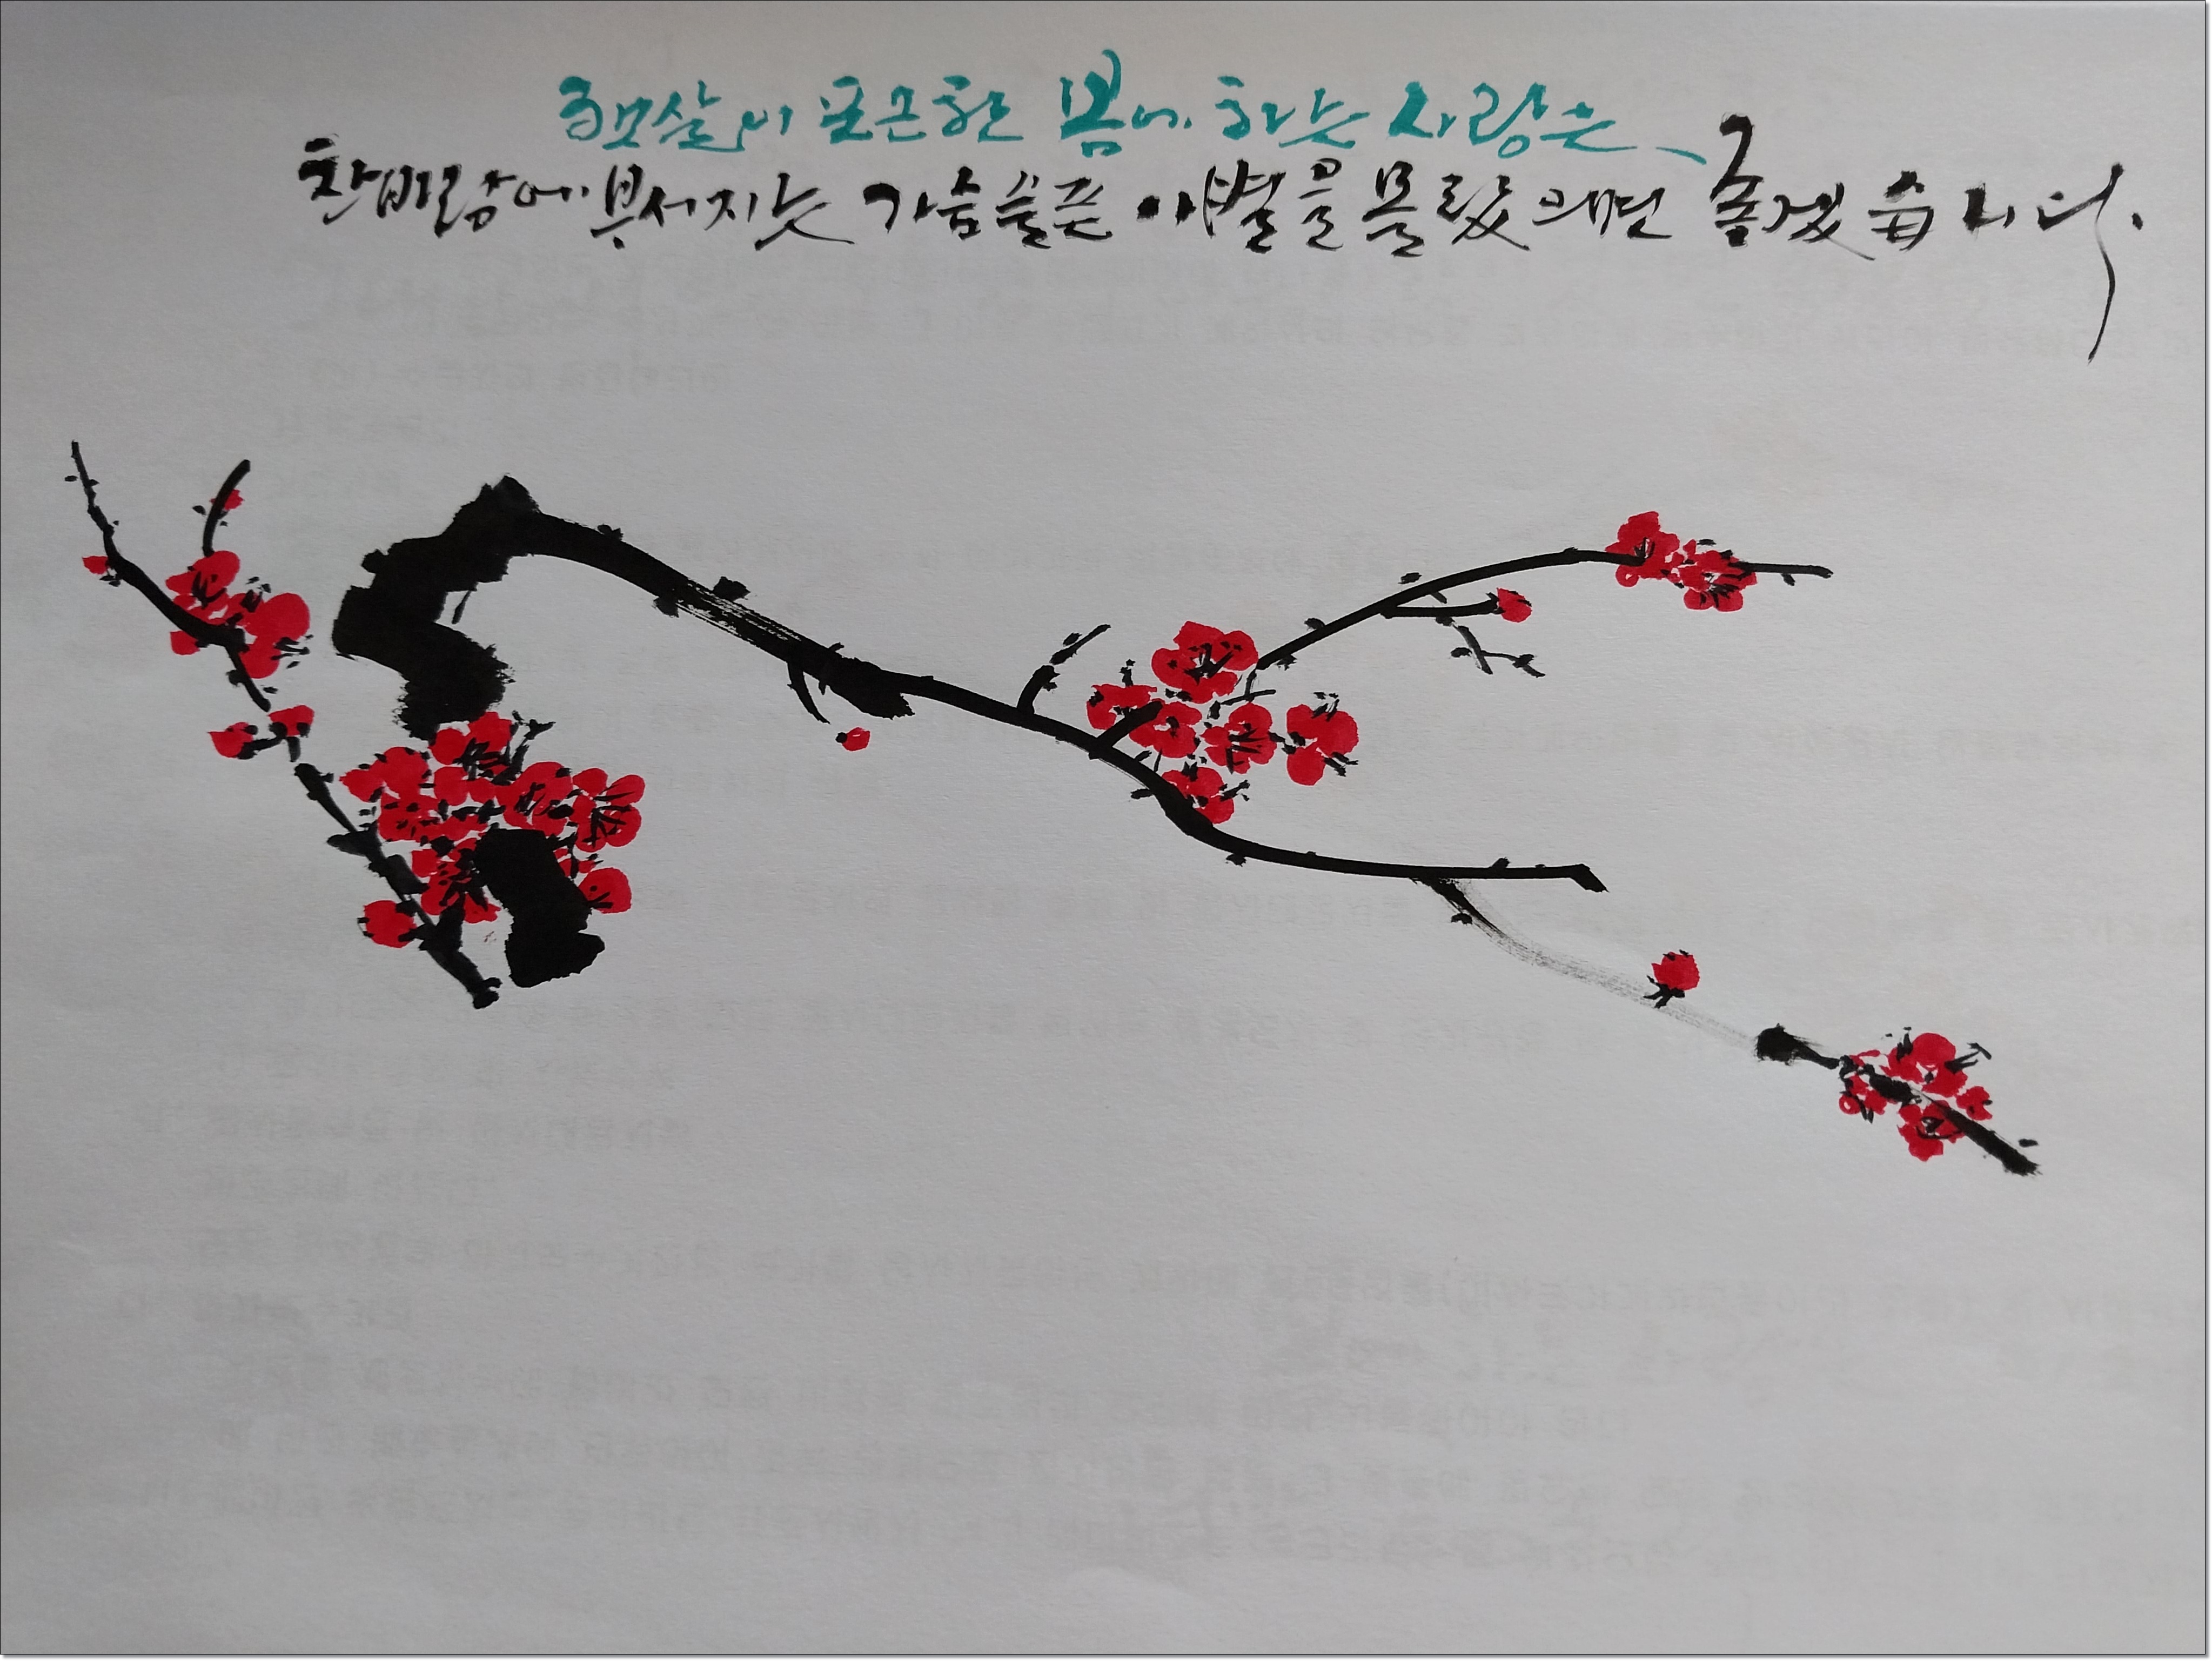 햇살이 포근한 봄에 하는 사랑은
찬바람에 부서지는 가슴 슬픈 이별을 몰랐으면 좋겠습니다.